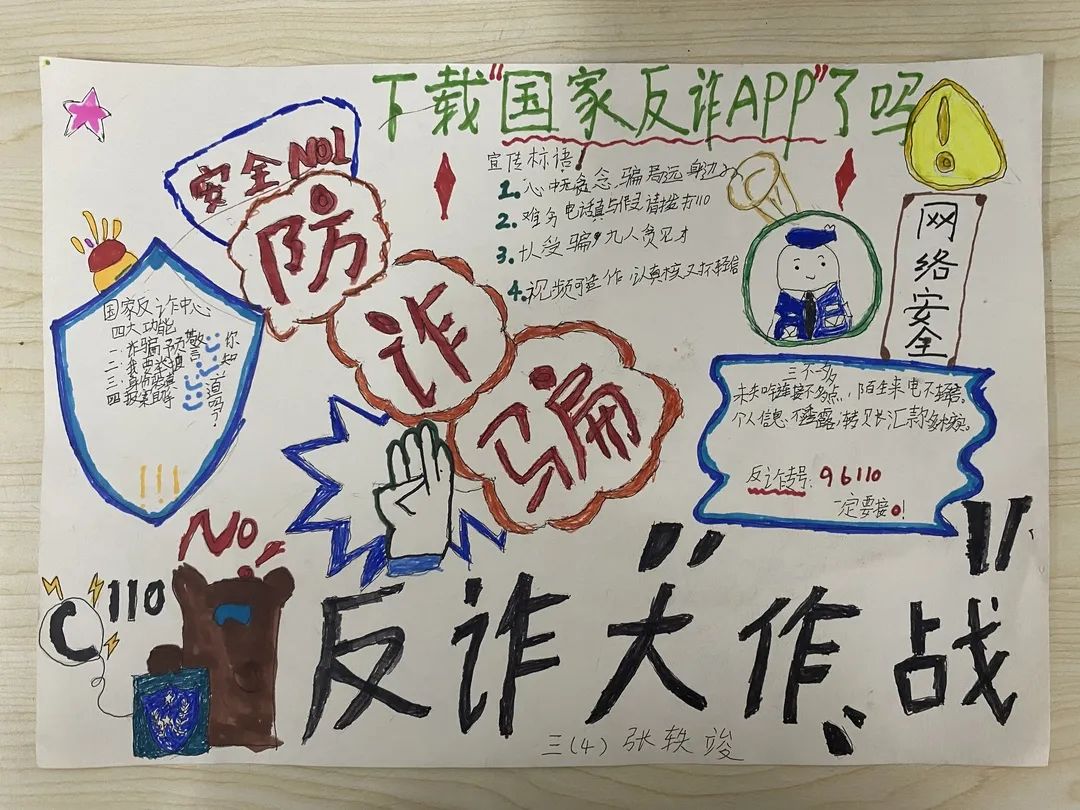 下载"国家反诈APP"了吗
安全NO1
防
诈
骗
宣传标语
1. 心中无贪念,骗局远身边
2. 难分电话真与假请拨打110
3. 十人受骗,九人贪见才
4. 视频可造作,认真核又不轻信
网络安全
国家反诈中心
四大功能
一:诈骗预方警
二:我要举报
三:身份验真
四:报案助手
你知道吗?
!!!
三不一多
未知链接不多点,陌生来电不轻信。
个人信息不透露,转
汇款多核实。
反诈专号:96110
一定要接!
No!
110
反诈大作战
三(4) 张轶竣